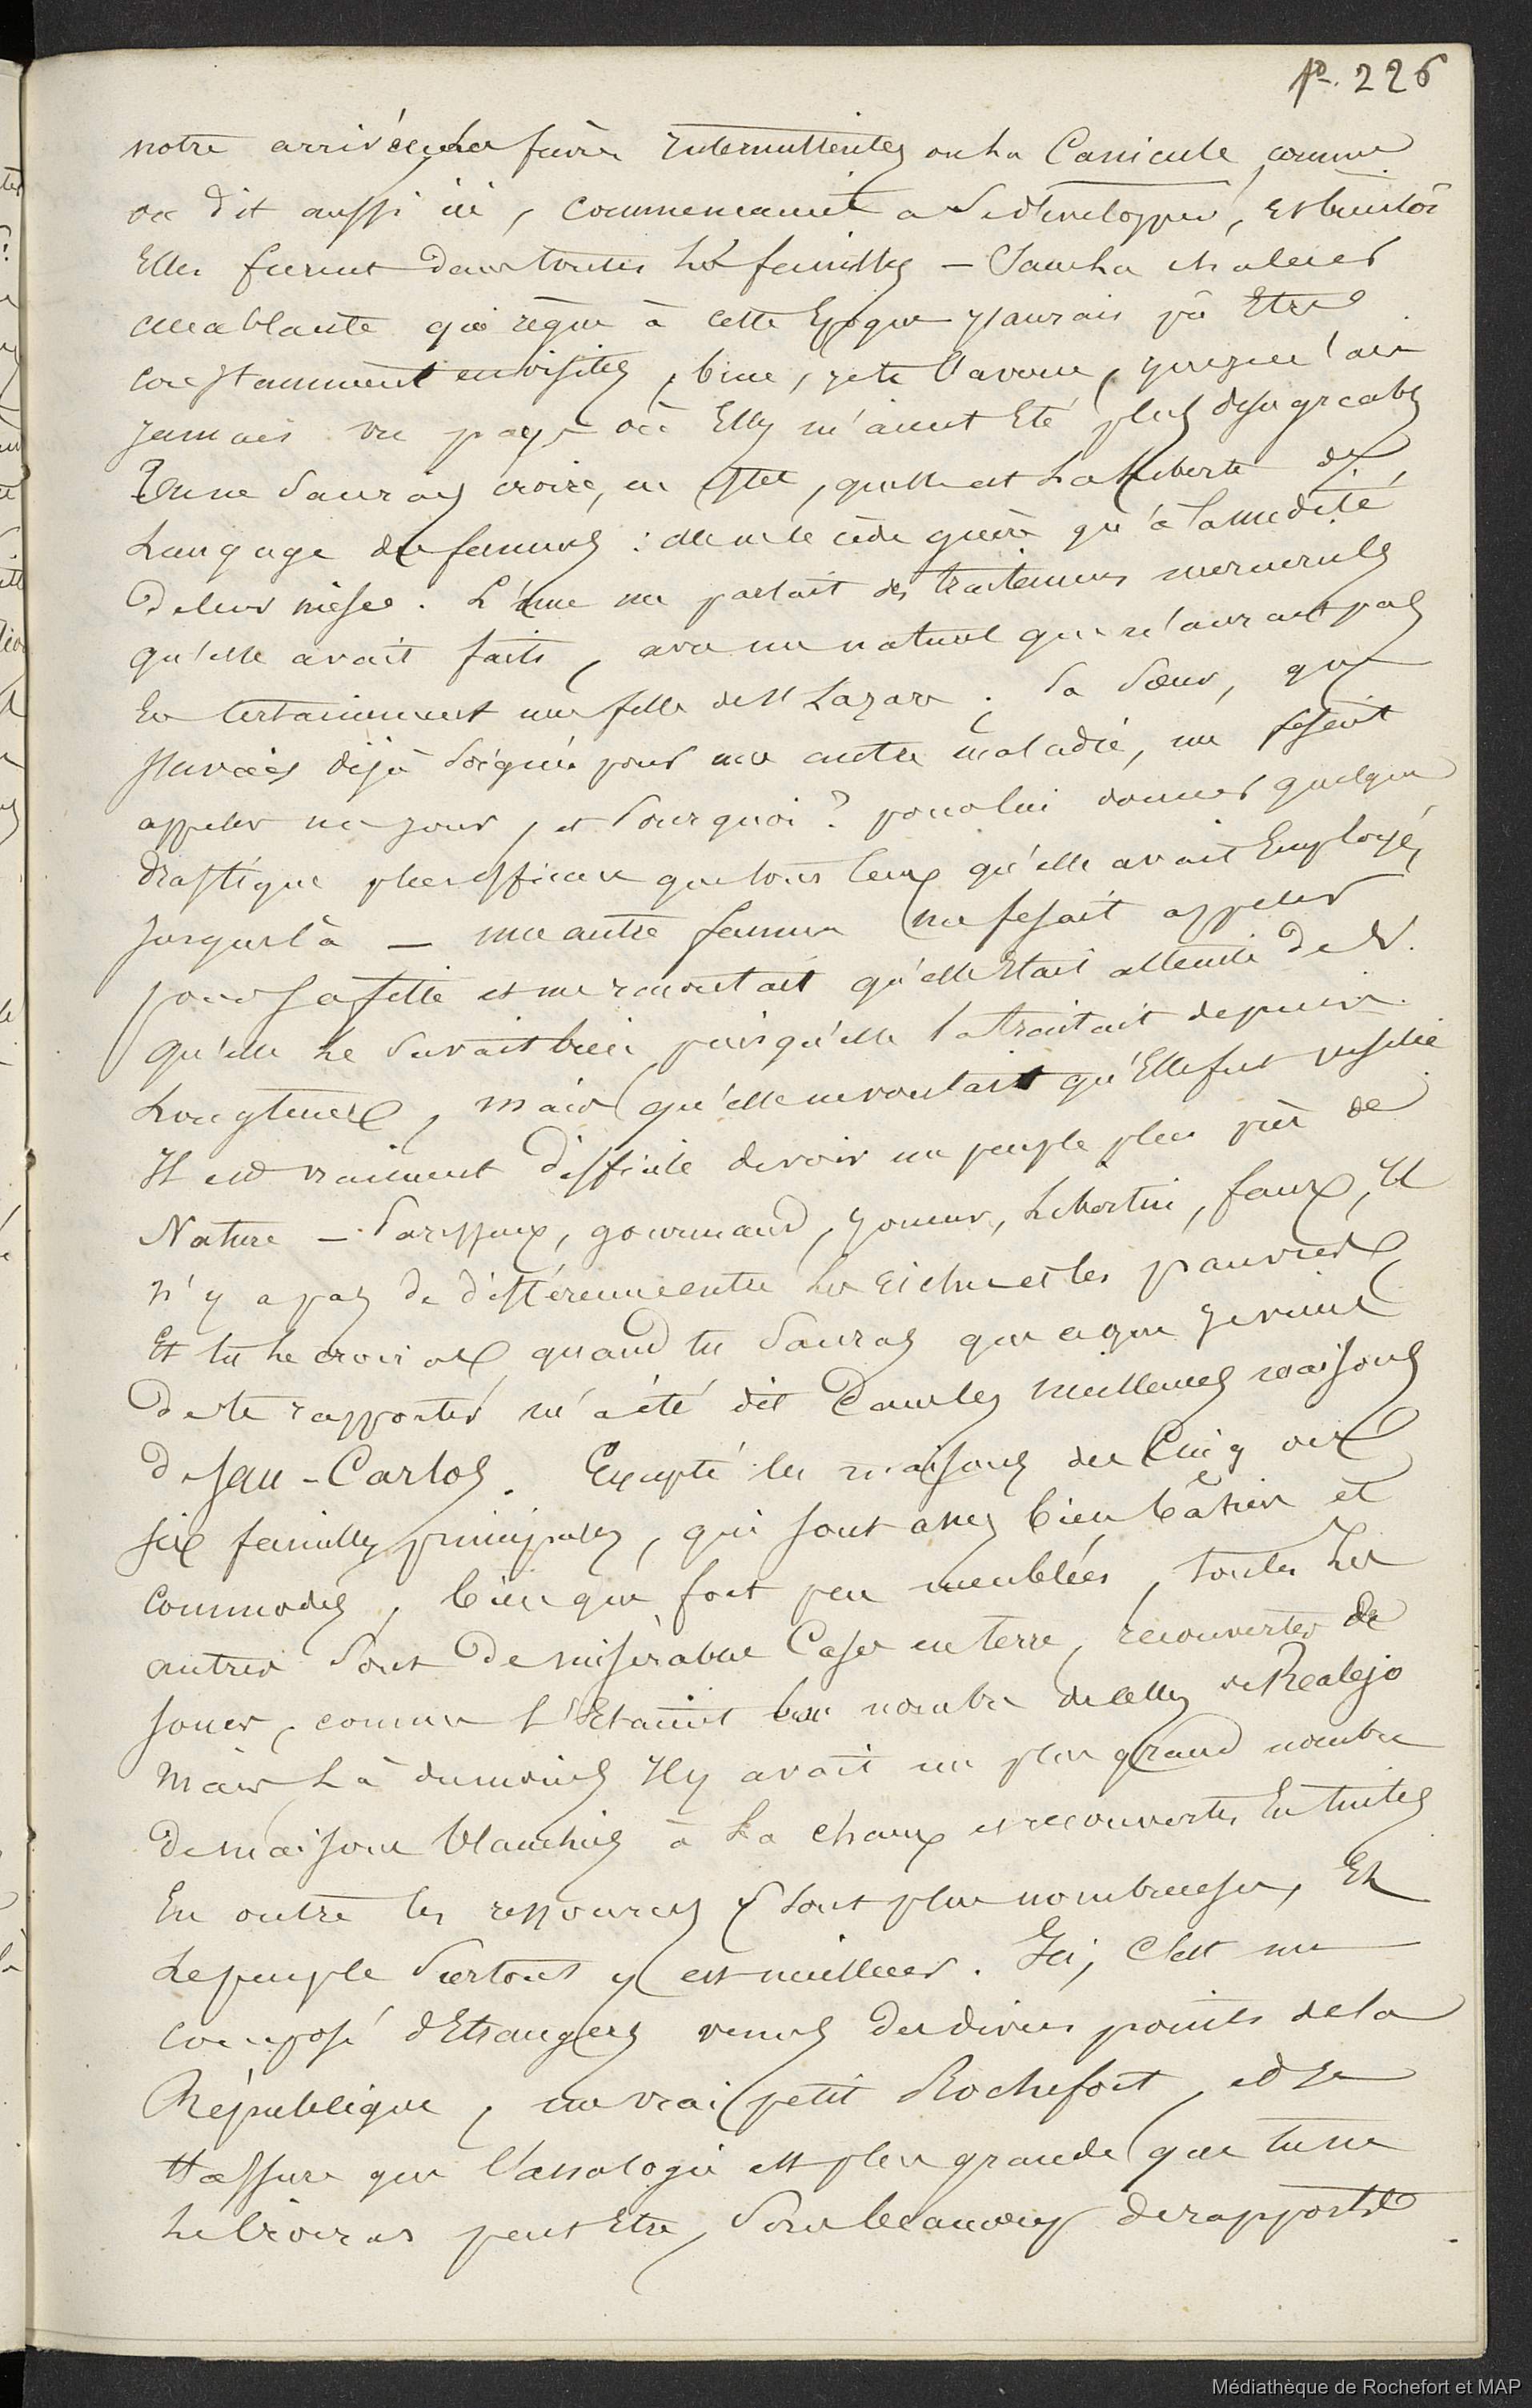 p. 226
notre arrivée, les fièvres intermittentes ou la Canicule, comme
on dit aussi ici, commencaient a se développer, et bientôt
Elles furent dans toutes les familles — Sans la chaleur
accablante qui règne à cette Epoque j'aurais pû Etre
constamment en visites, bien, je te l'avoue, que je n'aie
jamais vu pays où Elles m'aient Eté plus desagreables
Tu ne saurais croire, en effet, quelle est la liberté de
Langage des femmes : elle ne le cède guère qu'à la nudité
de leur mise. L'une me parlait des traitements mercuriels
qu'elle avait faits, avec un naturel que n'aurait pas
Eu certainement une fille de St Lazare. Sa Sœur, que
j'avais déjà Soignée pour une autre maladie, me fesait
appeler un jour, et Pourquoi? pour lui donner quelque
drastique plus efficace que tous ceux qu'elle avait Employés
jusque là — une autre femme me fesait appeler
pour sa fille et me racontait qu'elle Etait atteinte de V.
qu'elle le Savait bien puisqu'elle la traitait depuis
Longtemps, mais qu'elle ne voulait qu'Elle fut
Il est vraiment difficile de voir un peuple plus près de
Nature — Paresseux, gourmand, joueur, Libertin, faux, Il
n'y a pas de différence entre les riches et les pauvres
Et tu le croiras quand tu Sauras que ce que je viens
de te rapporter m'a été dit dans les meilleures maisons
de San-Carlos. Excepté les maisons des Cinq ou
six familles principales, qui sont assez bien bâties et
commodes, bien que fort peu meublées, toutes les
autres Sont de misérables Cases en terre, recouvertes de
joncs, comme l'Etaient bon nombre de celles de Realejo
Mais Là du moins Il y avait un plus grand nombre
de maisons blanchies à la chaux et recouvertes En tuiles
En outre les ressources y Sont plus nombreuses, Et
Le peuple Surtout y est meilleur. Ici, C'est un
composé d'Etrangers venus des divers points de la
République, un vrai petit Rochefort, et je
t'assure que l'analogie est plus grande que tu ne
le croiras peut Etre, Sous beaucoup de rapports
Médiathèque de Rochefort et MAP